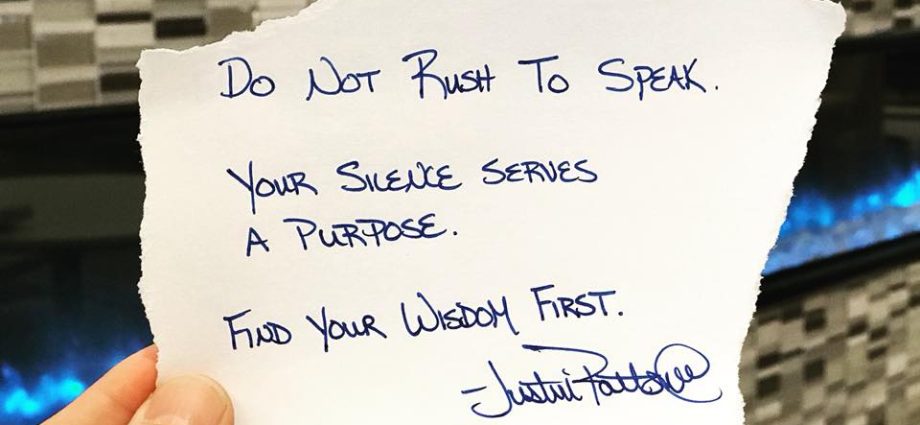 DO NOT RUSH TO SPEAK.
YOUR SILENCE SERVES
A PURPOSE.
FIND YOUR WISDOM FIRST.
-Justin